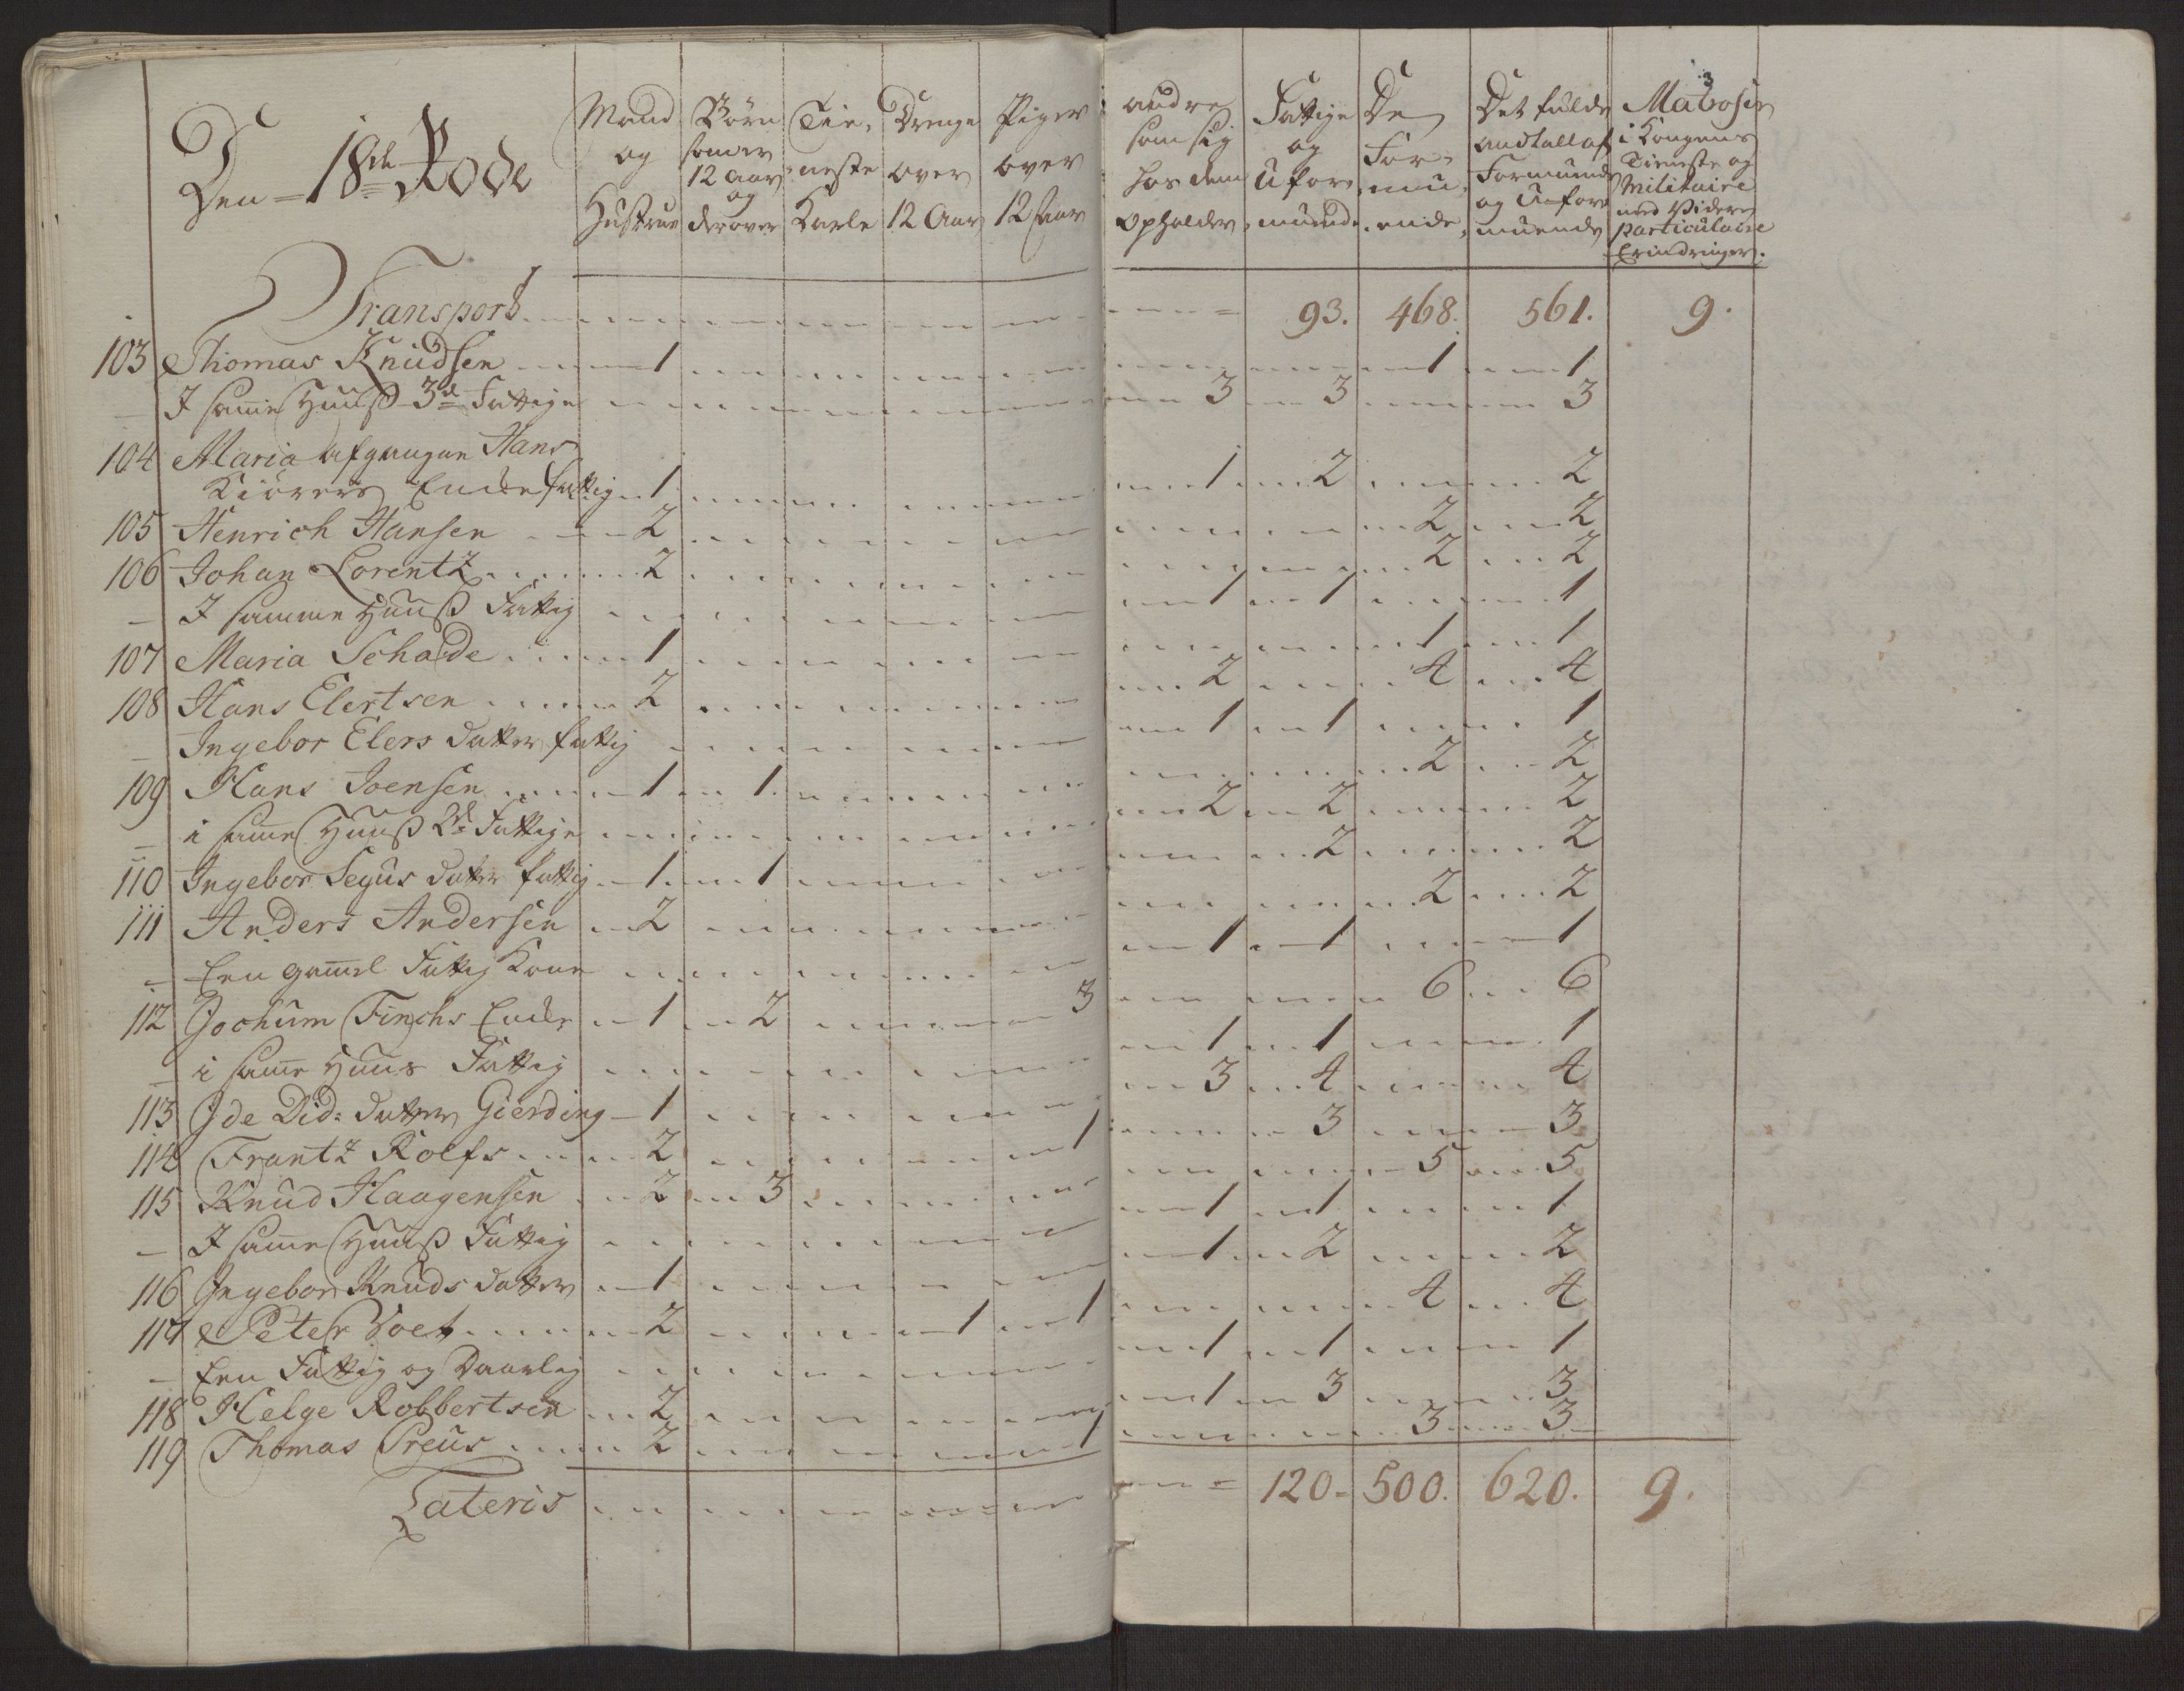 Den 18de Rode
Mand og Hustrue | Børn som er 12 Aar og derover | Tieneste Karle | Drenge over 12 Aar | Piger over 12 Aar | andre som sig hos dem opholder | Fattige og Uformuende | De Formuende | Det fulde andtall af Formuende og Uformuende | Matroser i Kongens Tieneste og Militaire med Videre particulaire Erindringer.
Transport 93. 468. 561. 9.
103 Thomas Knudsen 1 1 1
I same Huus 3de Fattige 3 3 3
104 Maria afgangne Hans
Kiørers Encke fattig 1 1 2 2
105 Henrich Hansen 2 2 2
106 Johan Lorentz 2 2 2
I samme Huus Fattig 1 1 1
107 Maria Schade 1 1 1
108 Hans Elertsen 2 2 4 4
Ingebor Elers datter fattig 1 1 1
109 Hans Joensen 1 1 2 2
i same Huus 2de Fattige 2 2 2
110 Ingebor Segus datter fattig 1 1 2 2
111 Anders Andersen 2 2 2
Een gamel Fattig Kone 1 1 1
112 Jochum Finchs Encke 1 2 3 6 6
i same Huus Fattig 1 1 1
113 Ide Did: datter Gierding 1 3 4 4
114 Frantz Rolfs 2 1 3 3
115 Knud Haagensen 2 3 5 5
I same Huus Fattig 1 1 1
116 Ingebor Knuds datter 1 1 2 2
117 Peter Voet 2 1 1 4 4
Een Fattig og Daarlig 1 1 1
118 Helge Robbertsen 2 1 3 3
119 Thomas Preus 2 1 3 3
Lateris 120 500. 620. 9.